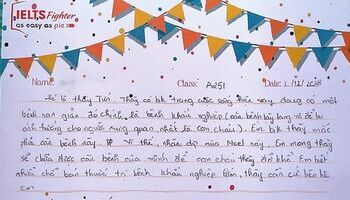 IELTS Fighter
as easy as pie
Name: Class: A251 Date: 1/12/2018
Thầy có bk trong cuộc sống hiện nay đang có một
bệnh nan giải. Đó chính là bệnh khẩu nghiệp (căn bệnh lây lan và dễ lại
ảnh hưởng cho người xung quanh nhất là con cháu). Em bk thầy mắc
phải căn bệnh này. Vì thế, nhân dịp Noel này, Em mong thầy
sẽ chữa được căn bệnh của mình để con cháu thầy đỡ khổ. Em biết
chỗ bán thuốc trị bệnh khẩu nghiệp lắm, thầy cần cứ liên hệ
em